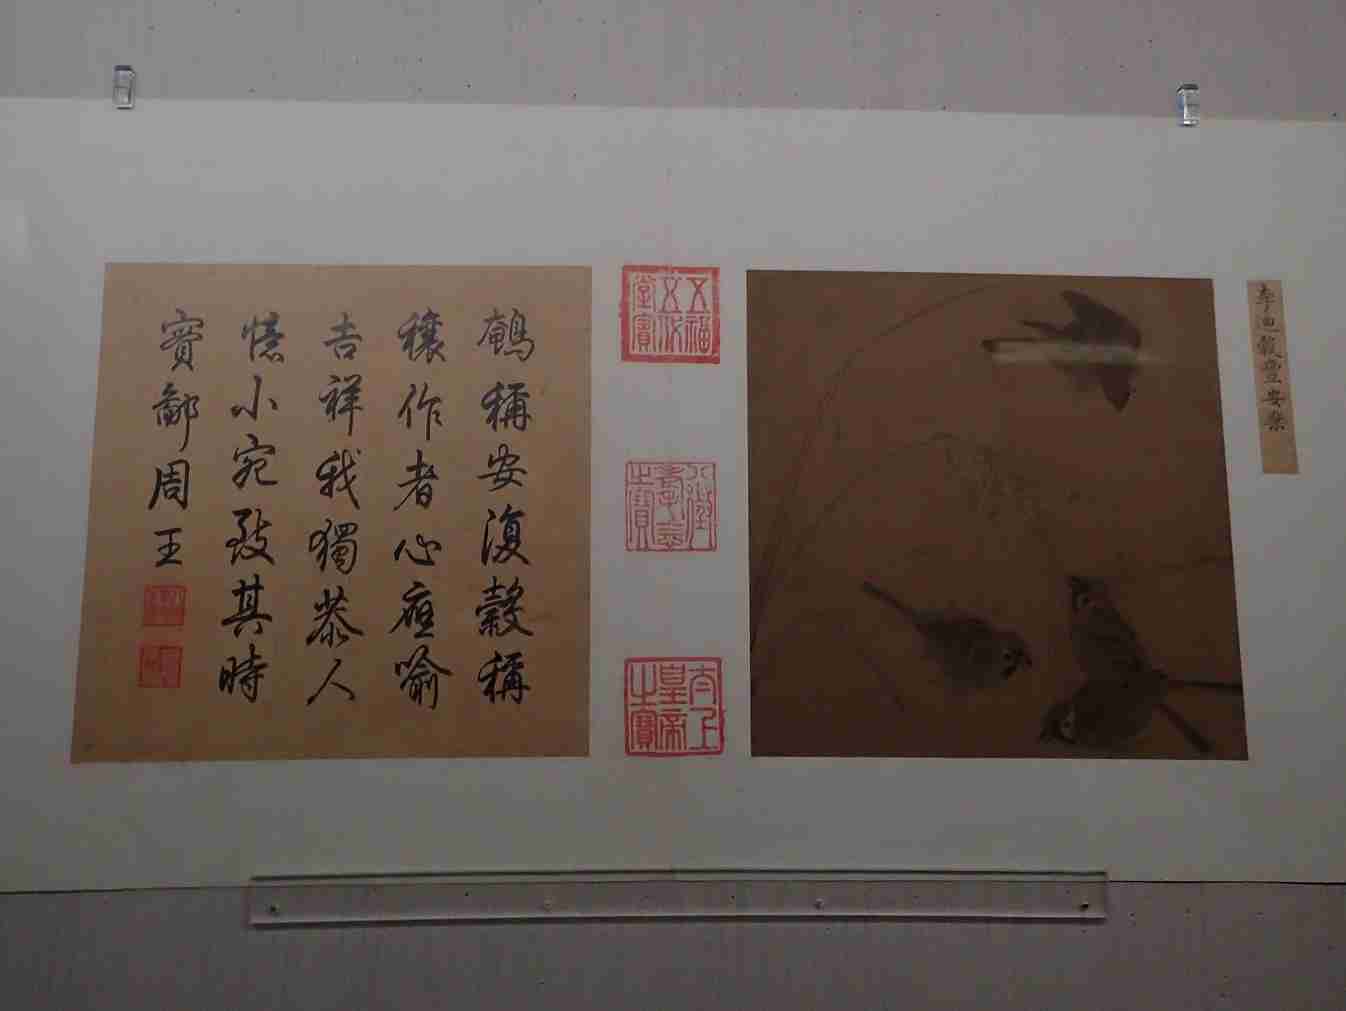 李迪穀豐安樂
五福五代堂寶
八徵耄念之寶
太上皇帝之寶
鵪稱安復穀稱
穰作者心應喻
吉祥我獨恭人
憶小宛致其時
實鄙周王